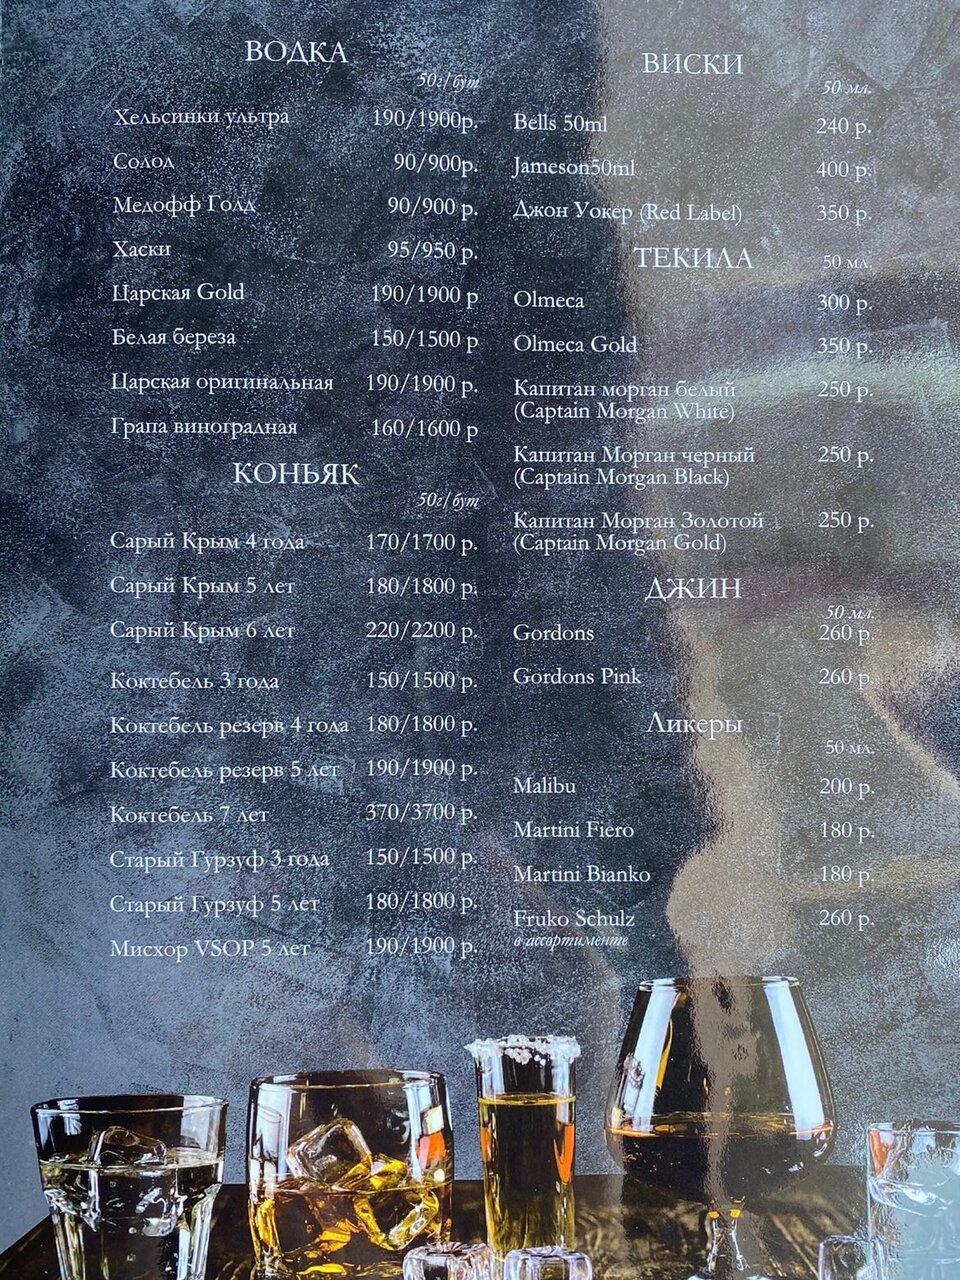 ВОДКА
50г/бут
Хельсинки ультра 190/1900р.
Солод 90/900р.
Медофф Голд 90/900 р.
Хаски 95/950 р.
Царская Gold 190/1900 р
Белая береза 150/1500 р
Царская оригинальная 190/1900 р.
Грапа виноградная 160/1600 р
КОНЬЯК
50г/бут
Сарый Крым 4 года 170/1700 р.
Сарый Крым 5 лет 180/1800 р.
Сарый Крым 6 лет 220/2200 р.
Коктебель 3 года 150/1500 р.
Коктебель резерв 4 года 180/1800 р.
Коктебель резерв 5 лет 190/1900 р.
Коктебель 7 лет 370/3700 р.
Старый Гурзуф 3 года 150/1500 р.
Старый Гурзуф 5 лет 180/1800 р.
Мисхор VSOP 5 лет 190/1900 р.
ВИСКИ
50 мл.
Bells 50ml 240 р.
Jameson50ml 400 р.
Джон Уокер (Red Label) 350 р.
ТЕКИЛА 50 мл.
Olmeca 300 р.
Olmeca Gold 350 р.
Капитан морган белый 250 р.
(Captain Morgan White)
Капитан Морган черный 250 р.
(Captain Morgan Black)
Капитан Морган Золотой 250 р.
(Captain Morgan Gold)
ДЖИН
50 мл.
Gordons 260 р.
Gordons Pink 260 р.
Ликеры
50 мл.
Malibu 200 р.
Martini Fiero 180 р.
Martini Bianko 180 р.
Fruko Schulz 260 р.
в ассортименте